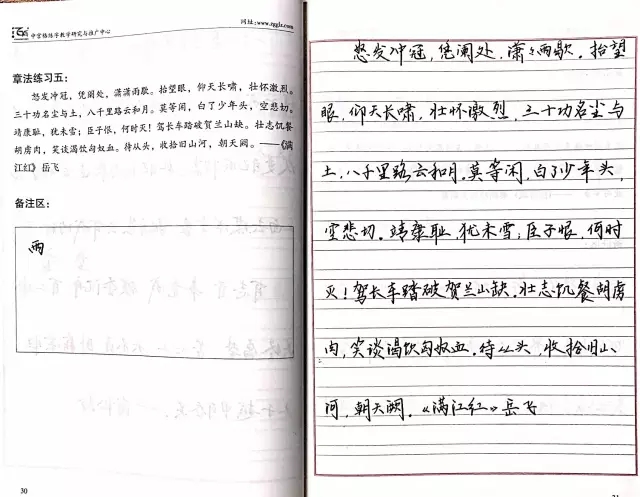 中宫格练字教学研究与推广中心
网址:www.zgglz.com
章法练习五:
怒发冲冠,凭阑处,潇潇雨歇。抬望眼,仰天长啸,壮怀激烈。
三十功名尘与土,八千里路云和月。莫等闲,白了少年头,空悲切。
靖康耻,犹未雪;臣子恨,何时灭!驾长车踏破贺兰山缺。壮志饥餐
胡虏肉,笑谈渴饮匈奴血。待从头,收拾旧山河,朝天阙。——《满
江红》岳飞
备注区:
雨
30
怒发冲冠,凭阑处,潇々雨歇。抬望
眼,仰天长啸,壮怀激烈,三十功名尘与
土,八千里路云和月,莫等闲,白了少年头,
空悲切。靖康耻,犹未雪;臣子恨,何时
灭!驾长车踏破贺兰山缺.壮志饥餐胡虏
肉,笑谈渴饮匈奴血.待从头,收拾旧山
河,朝天阙。《满江红》岳飞